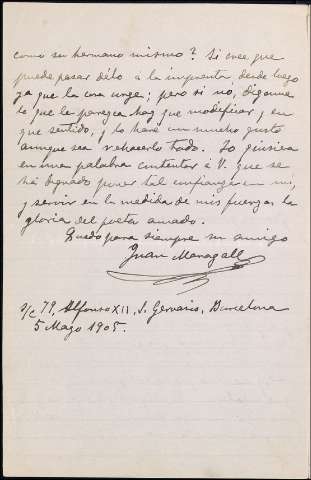 como su hermano mismo? Si cree que
puede pasar délo á la imprenta, desde luego
ya que la cosa urge; pero si no, dígame
lo que le parezca hay que modificar y en
que sentido, y lo haré con mucho gusto
aunque sea rehacerlo todo. Lo quisiera
en una palabra contentar á V. que se
ha dignado poner tal confianza en mí,
y servir en la medida de mis fuerzas la
gloria del poeta amado.
Quedo para siempre su amigo
Juan Maragall
s/c 79, Alfonso XII, S. Gervasio, Barcelona
5 Mayo 1905.